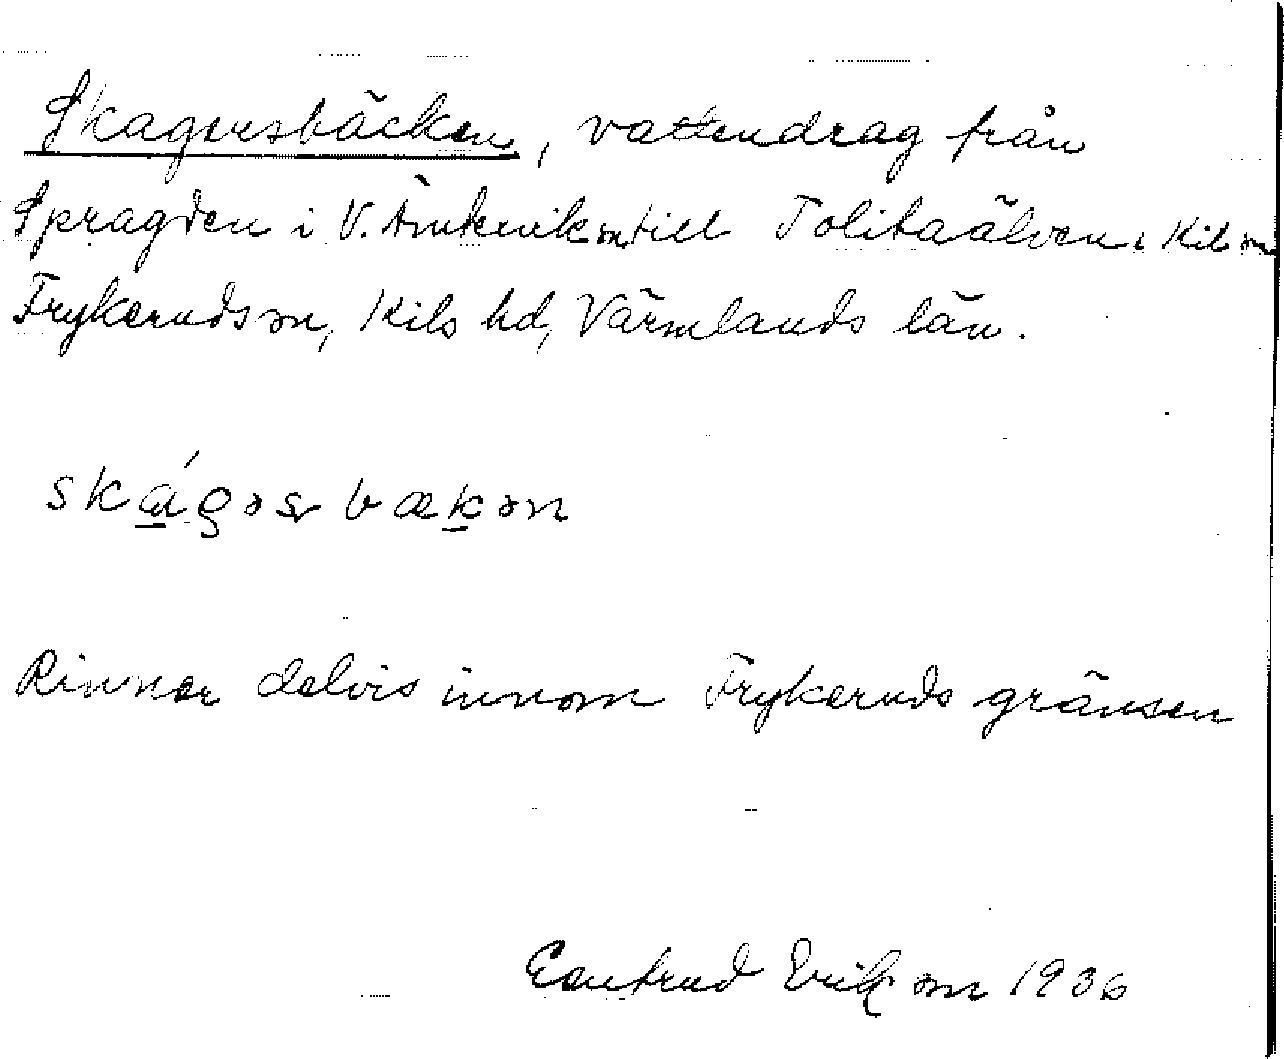 Skagersbäcken, vattendrag från
Spragden i V. Ämtervik sn till Tolitaälven i Kil sn
Frykeruds sn, Kils hd, Värmlands län.
skágəs bækən
Rinner delvis innom Frykeruds gränsen
Gertrud Erikson 1936